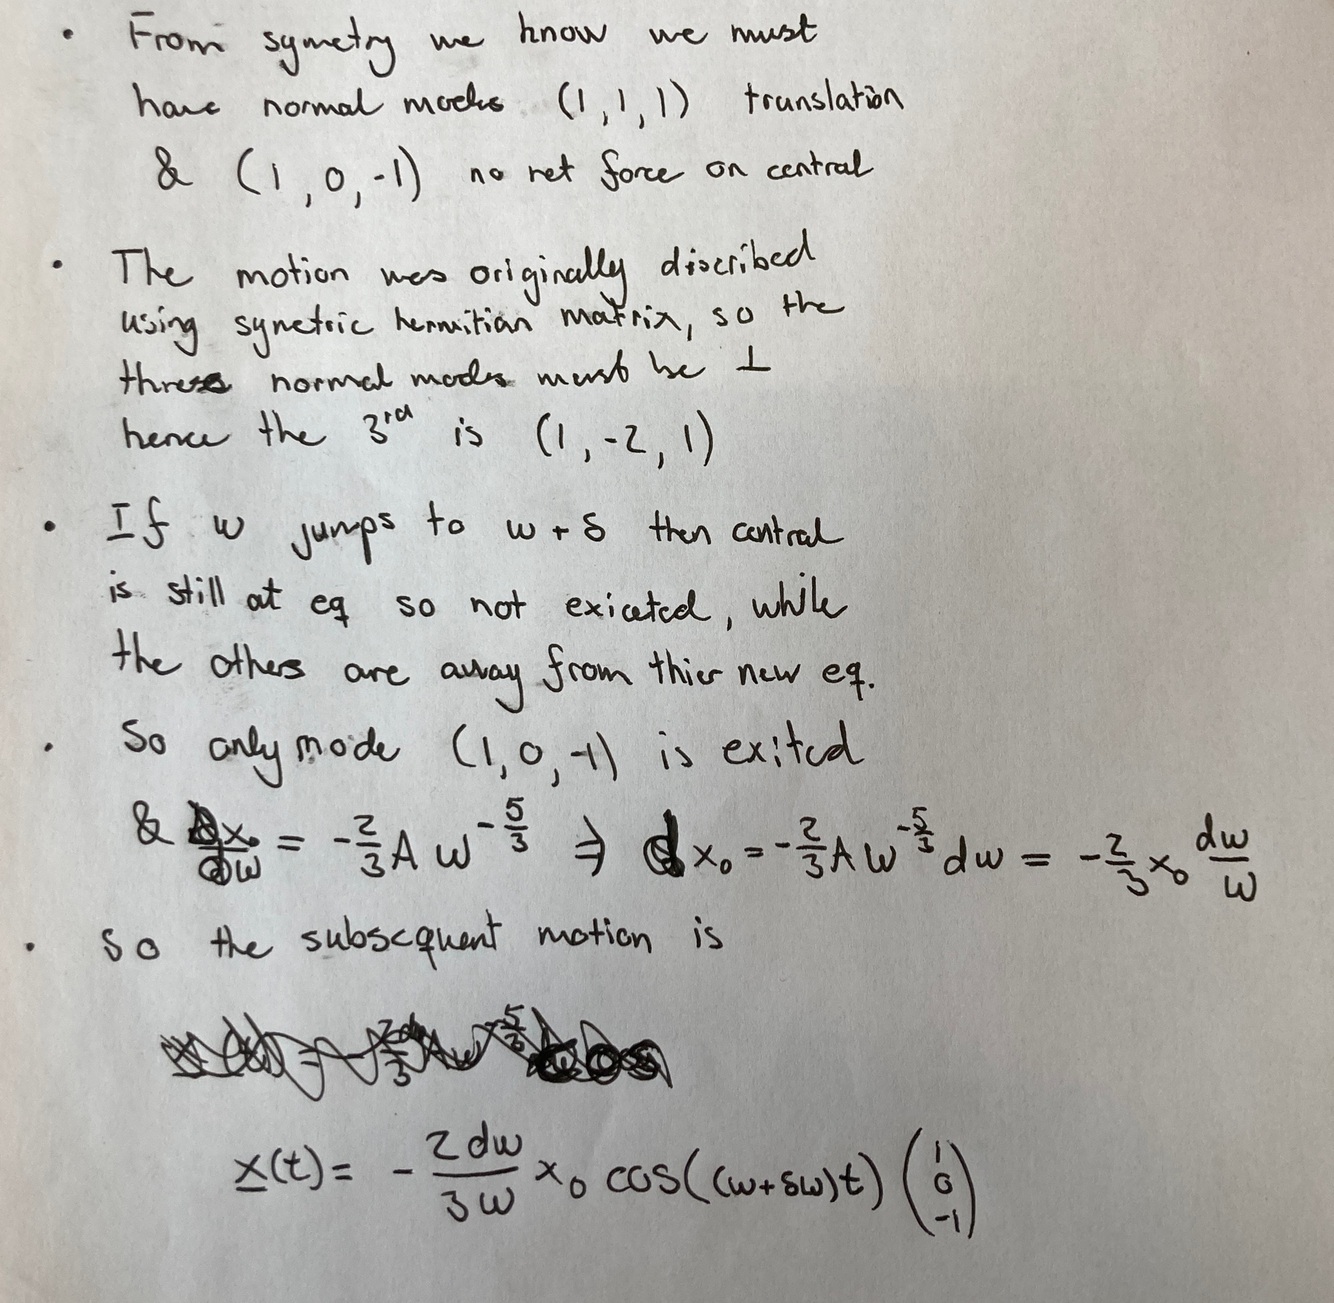 • From symetry we know we must
have normal modes (1, 1, 1) translation
& (1, 0, -1) no net force on central
• The motion was originally discribed
using symetric hermitian matrix, so the
three normal modes must be ⊥
hence the 3rd is (1, -2, 1)
• If w jumps to w + δ then central
is still at eq so not exicted, while
the others are away from thier new eq.
• So only mode (1, 0, -1) is exited
& dx₀/dw = -2/3 A w^(-5/3) ⇒ dx₀ = -2/3 A w^(-5/3) dw = -2/3 x₀ dw/w
• So the subsequent motion is
x(t) = - 2dw/3w x₀ cos((w+δw)t) (1 0 -1)